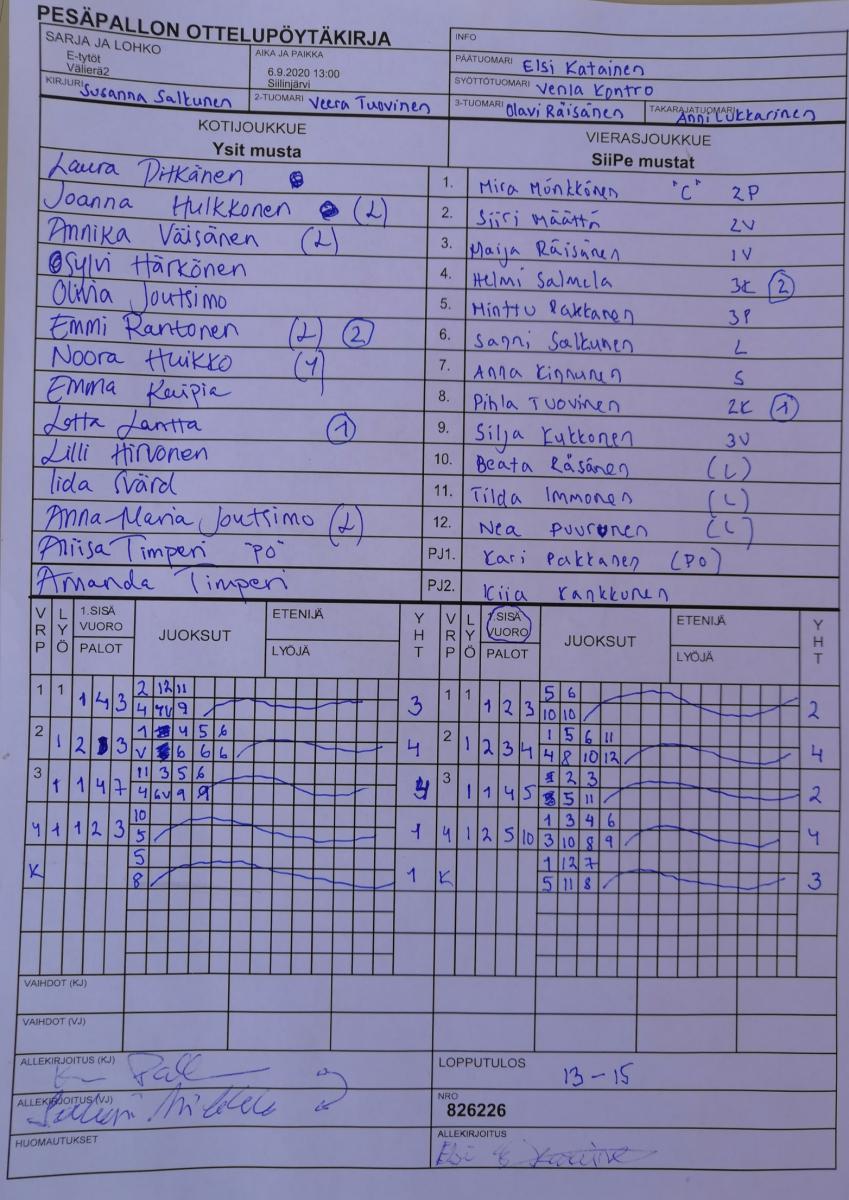 PESÄPALLON OTTELUPÖYTÄKIRJA
SARJA JA LOHKO
E-tytöt
Välierä2
AIKA JA PAIKKA
6.9.2020 13:00
Siilinjärvi
INFO
PÄÄTUOMARI Elsi Katainen
SYÖTTÖTUOMARI Venla Kontro
KIRJURI Susanna Salkunen
2-TUOMARI Veera Tuovinen
3-TUOMARI Olavi Räisänen
TAKARAJATUOMARI Anni Lukkarinen
KOTIJOUKKUE
Ysit musta
VIERASJOUKKUE
SiiPe mustat
Laura Pitkänen 1. Mira Mönkkönen "C" 2P
Joanna Hulkkonen (L) 2. Siiri Määttä 2V
Annika Väisänen (L) 3. Maija Räisänen 1V
Sylvi Härkönen 4. Helmi Salmela 3K 2
Olivia Joutsimo 5. Minttu Pakkanen 3P
Emmi Rantonen (L) 2 6. Sanni Salkunen L
Noora Huikko 7. Anna Kinnunen S
Emma Kaipia 8. Pihla Tuovinen 2K 1
Lotta Lantta 1 9. Silja Kukkonen 3V
Lilli Hirvonen 10. Beata Räsänen (L)
Iida Svärd 11. Tilda Immonen (L)
Anna-Maria Joutsimo (L) 12. Nea Puurunen (L)
Aliisa Timperi "PO" PJ1. Kari Pakkanen (PO)
Amanda Timperi PJ2. Kiia Kankkunen
VRP LYÖ 1.SISÄ VUORO PALOT JUOKSUT ETENIJÄ LYÖJÄ YHT VRP LYÖ 1.SISÄ VUORO PALOT JUOKSUT ETENIJÄ LYÖJÄ YHT
1 1 1 4 3 2 12 11 3 1 1 1 2 3 5 6 2
4 9 10 10
2 1 2 3 1 4 5 6 4 2 1 2 3 4 1 5 6 11 4
V 6 6 6 4 8 10 12
3 1 1 4 7 11 3 5 6 4 3 1 1 4 5 2 3 2
4 6V 9 9 5 11
4 1 1 2 3 10 1 4 1 2 5 10 1 3 4 6 4
5 3 10 8 9
K 5 1 K 1 12 7 3
8 5 11 8
VAIHDOT (KJ)
VAIHDOT (VJ)
ALLEKIRJOITUS (KJ)
LOPPUTULOS
13-15
ALLEKIRJOITUS (VJ)
NRO
826226
HUOMAUTUKSET
ALLEKIRJOITUS